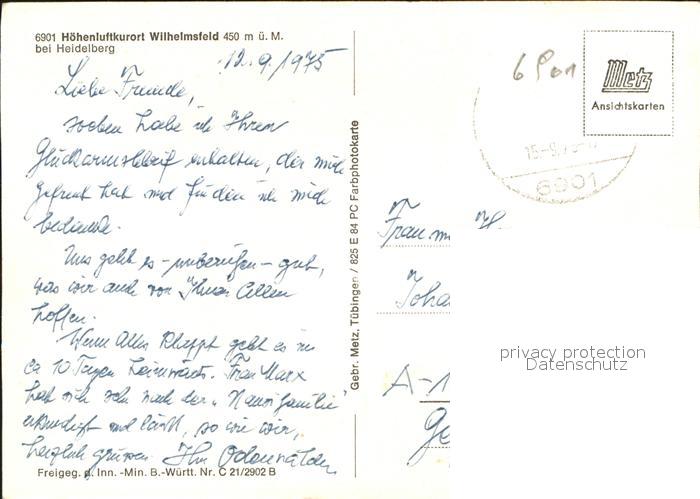 6901 Höhenluftkurort Wilhelmsfeld 450 m ü. M.
bei Heidelberg
12.9.1975
Liebe Freunde,
soeben habe ich Ihren
Glückwunschbrief erhalten, der mich
gefreut hat und für den ich mich
bedanke.
Uns geht es - unberufen - gut,
was wir auch von Ihnen Allen
hoffen.
Wenn Alles klappt geht es in
ca 10 Tagen heimwärts. Frau Marx
hat sich schon nach der "
und läßt, so wie wir,
herzlich grüssen. Ihre
Freigeg. d. Inn. -Min. B.-Württ. Nr. C 21/2902 B
Gebr. Metz, Tübingen / 825 E 84 PC Farbphotokarte
6901
Metz
Ansichtskarten
6901
Frau
A-1
privacy protection
Datenschutz